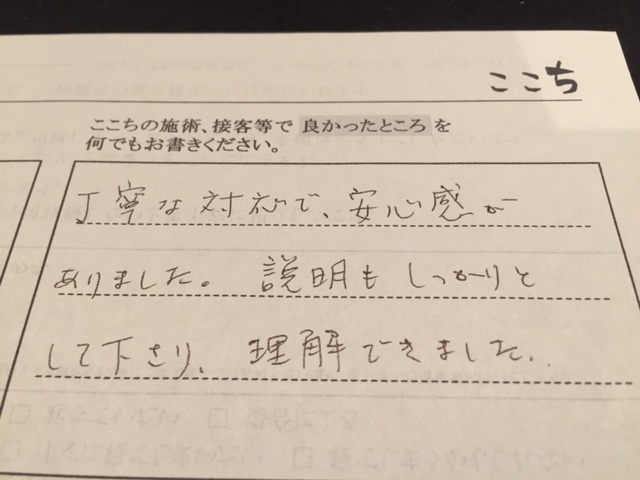 ここち
ここちの施術、接客等で 良かったところ を
何でもお書きください。
丁寧な対応で、安心感が
ありました。 説明もしっかりと
して下さり、理解できました。